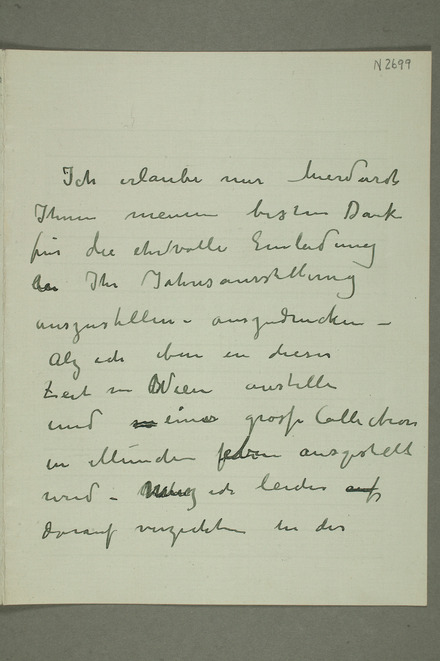 N 2699
Ich erlaube mir hierdurch
Ihnen meinen besten Dank
für die ehrvolle Einladung
in Ihr Jahresausstellung
auszustellen - auszudrucken -
Alz ich eben in dieser
Zeit in Wien austelle
und eine grosse Collection
in München ausgestellt
wird - muz ich leider auf
darauf verzichten in der